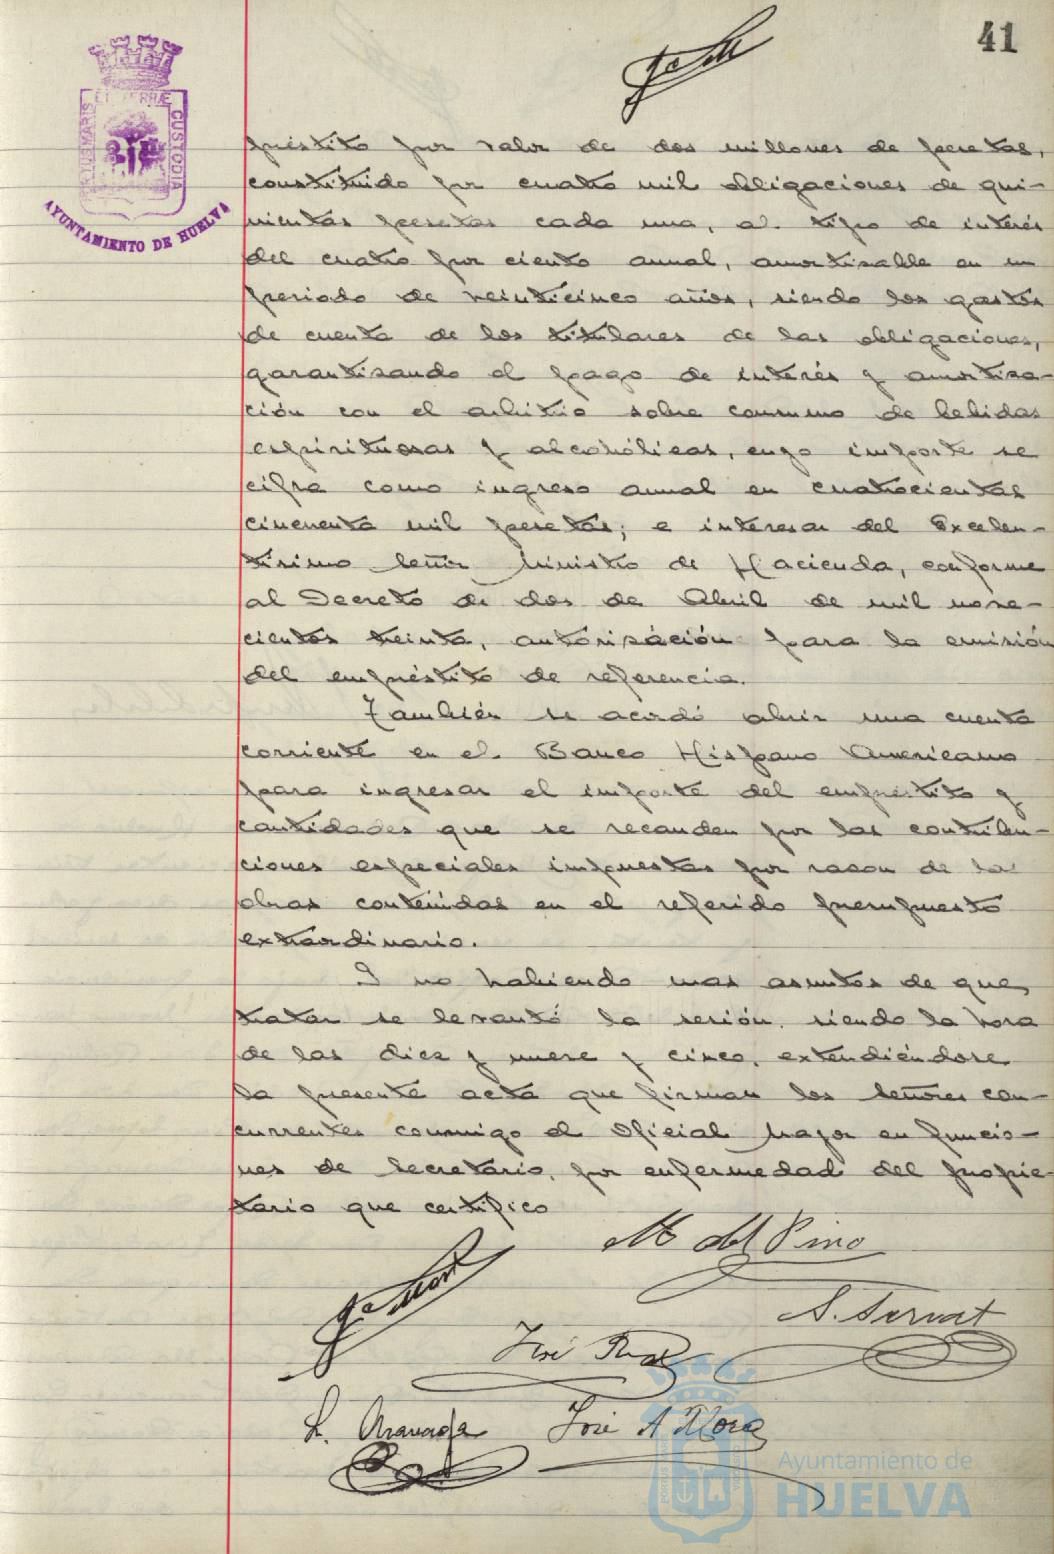 41
PORTUS MARIS ET TERRÆ CUSTODIA
AYUNTAMIENTO DE HUELVA
préstito por valor de dos millones de pesetas,
constituido por cuatro mil obligaciones de qui-
nientas pesetas cada una, al tipo de interés
del cuatro por ciento anual, amortizable en un
periodo de veinticinco años, siendo los gastos
de cuenta de los titulares de las obligaciones,
garantizando el pago de interés y amortiza-
ción con el arbitrio sobre consumo de bebidas
espirituosas y alcohólicas, cuyo importe se
cifra como ingreso anual en cuatrocientas
cincuenta mil pesetas; e interesar del Excelen-
tísimo Señor Ministro de Hacienda, conforme
al Decreto de dos de Abril de mil nove-
cientos treinta, autorización para la emisión
del empréstito de referencia.
También se acordó abrir una cuenta
corriente en el Banco Hispano Americano
para ingresar el importe del empréstito y
cantidades que se recauden por las contribu-
ciones especiales impuestas por razon de las
obras contenidas en el referido presupuesto
extraordinario.
Y no habiendo mas asuntos de que
tratar se levantó la sesión, siendo la hora
de las diez y nueve y cinco, extendiéndose
la presente acta que firman los Señores con-
currentes conmigo el Oficial Mayor en funcio-
nes de Secretario, por enfermedad del propie-
tario que certifico
M del Pino
S. Servat
José
José A Mora
Ayuntamiento de
HUELVA